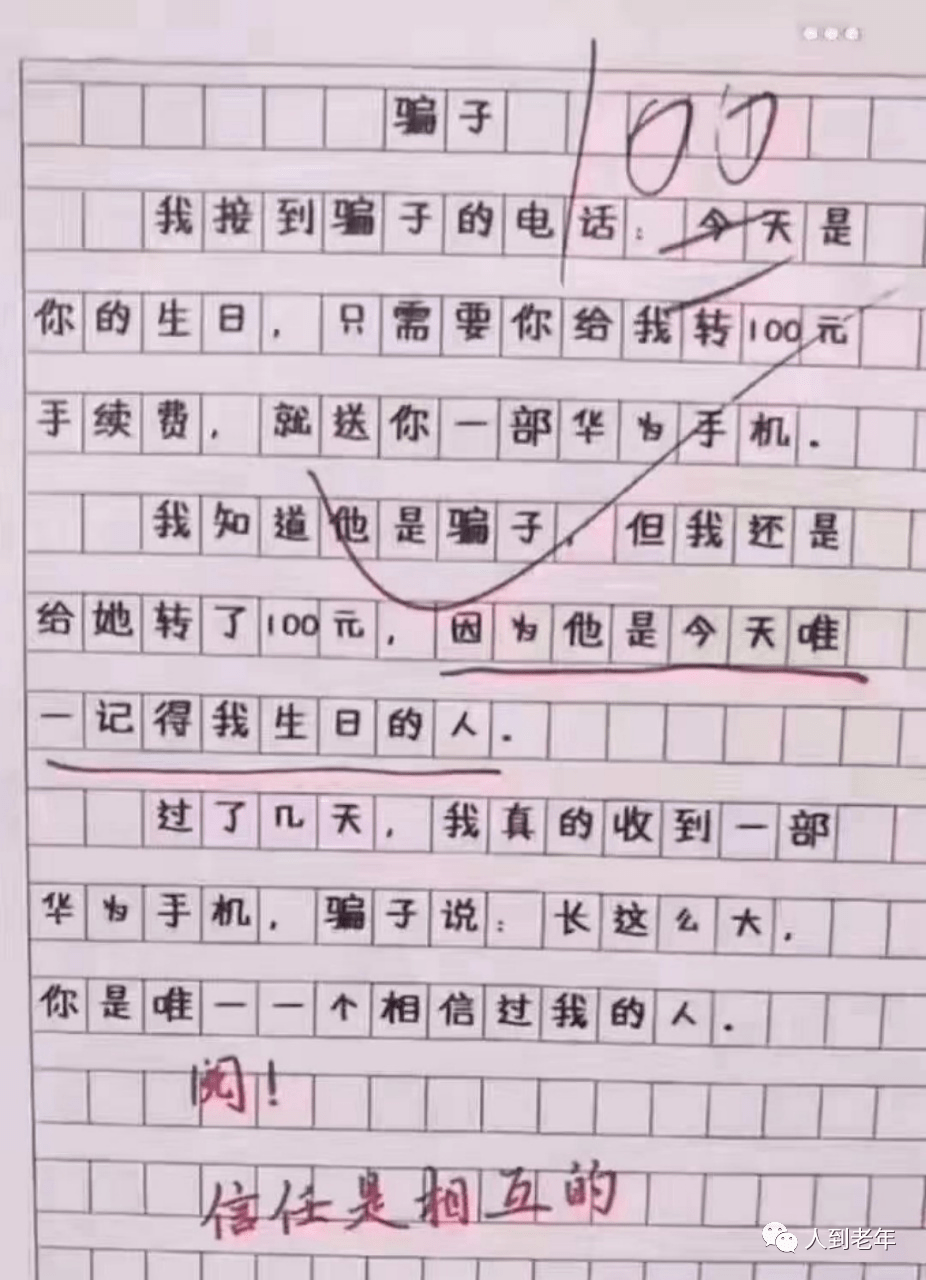 骗子
100
我接到骗子的电话：今天是
你的生日，只需要你给我转100元
手续费，就送你一部华为手机．
我知道他是骗子，但我还是
给她转了100元，因为他是今天唯
一记得我生日的人．
过了几天，我真的收到一部
华为手机，骗子说：长这么大，
你是唯一一个相信过我的人．
阅！
信任是相互的
人到老年